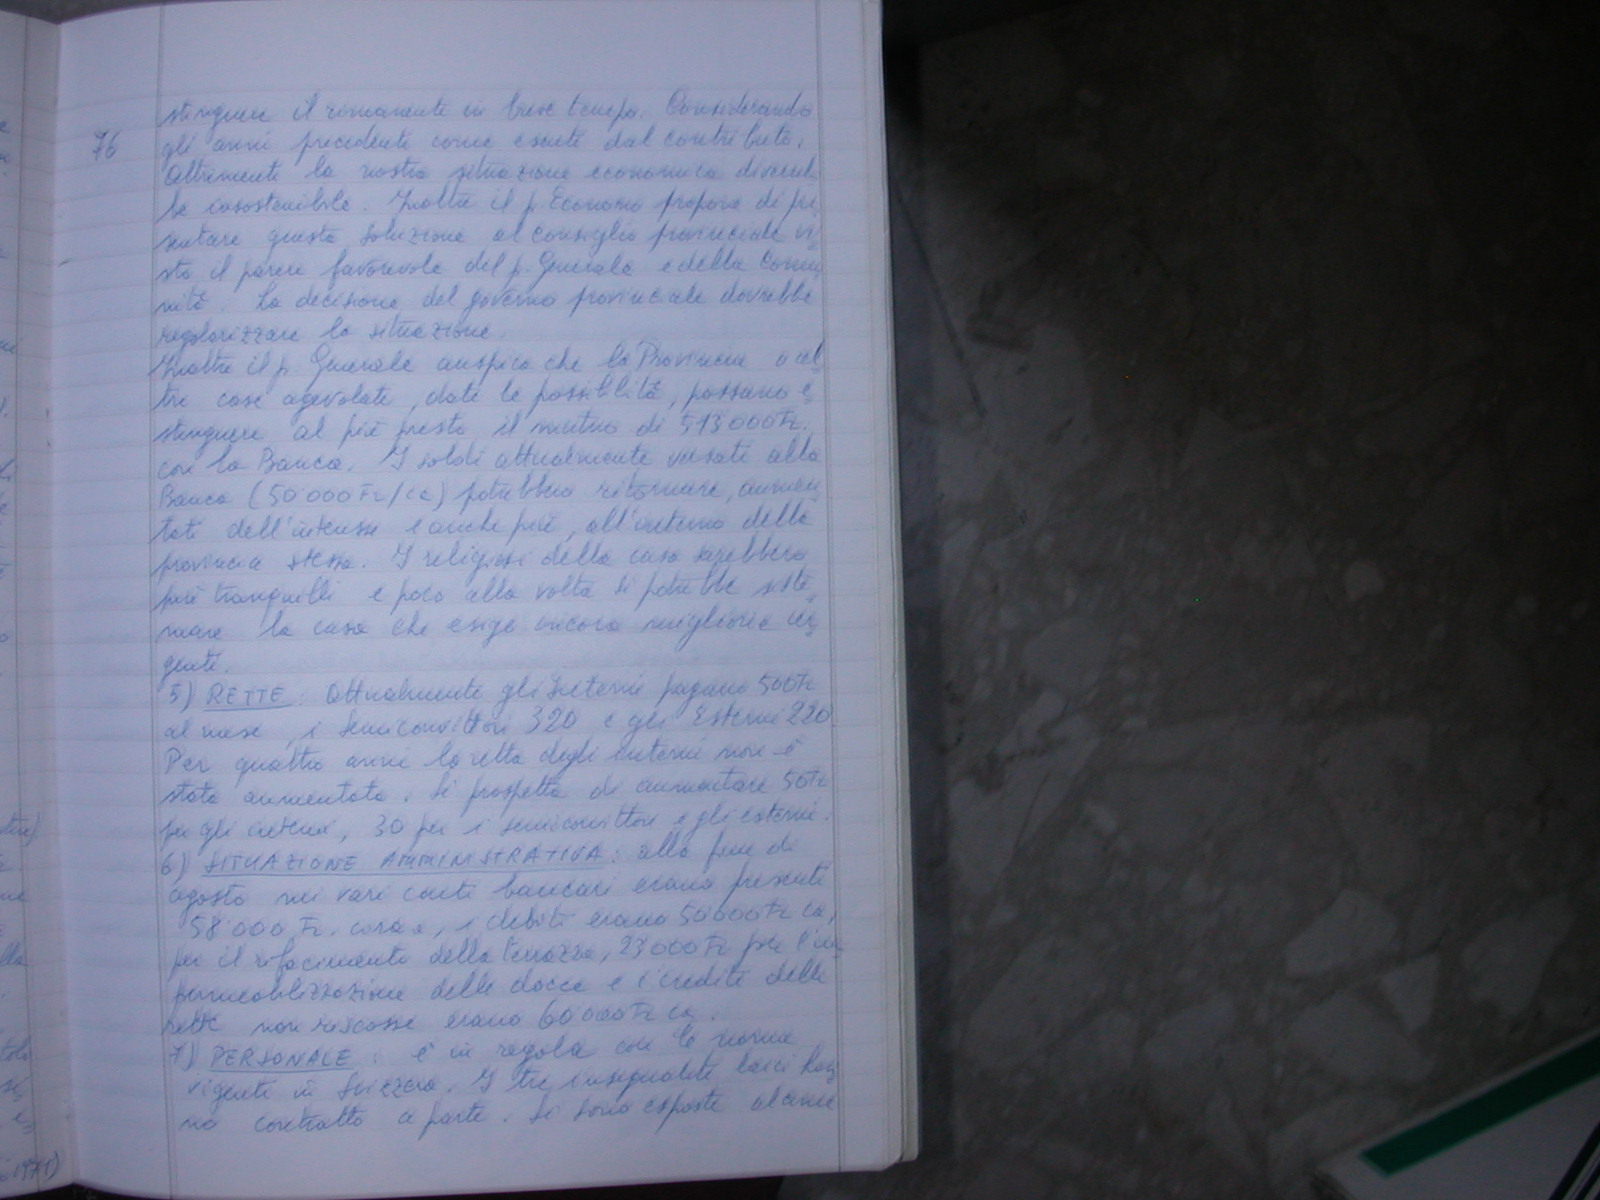 stinguere il rimanente in breve tempo. Considerando
76
gli anni precedenti come esenti dal contributo.
Altrimenti la nostra situazione economica divente-
be insostenibile. Inoltre il p. Economo propone di pre-
sentare questa soluzione al consiglio provinciale vi-
sto il parere favorevole del p. Generale e della Comu-
nità. La decisione del governo provinciale dovrebbe
regolarizzare la situazione.
Inoltre il p. Generale auspica che la Provincia o al-
tre case agevolate, date le possibilità, possano e-
stinguere al più presto il mutuo di 513'000 Fr.
con la Banca. I soldi attualmente versati alla
Banca (50'000 Fr/ca) potrebbero ritornare, aumen-
tati dell'interesse e anche più, all'interno della
provincia stessa. I religiosi della casa sarebbero
più tranquilli e poco alla volta si potrebbe siste-
mare la casa che esige ancora migliorie ur-
genti.
5) RETTE: Attualmente gli Interni pagano 500 Fr
al mese, i semiconvittori 320 e gli Esterni 220
Per quattro anni la retta degli interni non è
stata aumentata. Si prospetta di aumentare 50 Fr
per gli interni, 30 per i semiconvittori e gli esterni.
6) SITUAZIONE AMMINISTRATIVA: alla fine di
agosto nei vari conti bancari erano presenti
58'000 Fr. circa, i debiti erano 50'000 Fr ca,
per il rifacimento della terrazza, 23'000 Fr per l'im-
permeabilizzazione delle docce e i crediti delle
rette non riscosse erano 60'000 Fr ca.
7) PERSONALE: è in regola con le norme
vigenti in Svizzera. I tre insegnanti laici han-
no contratto a parte. Si sono esposte alcune
1971)